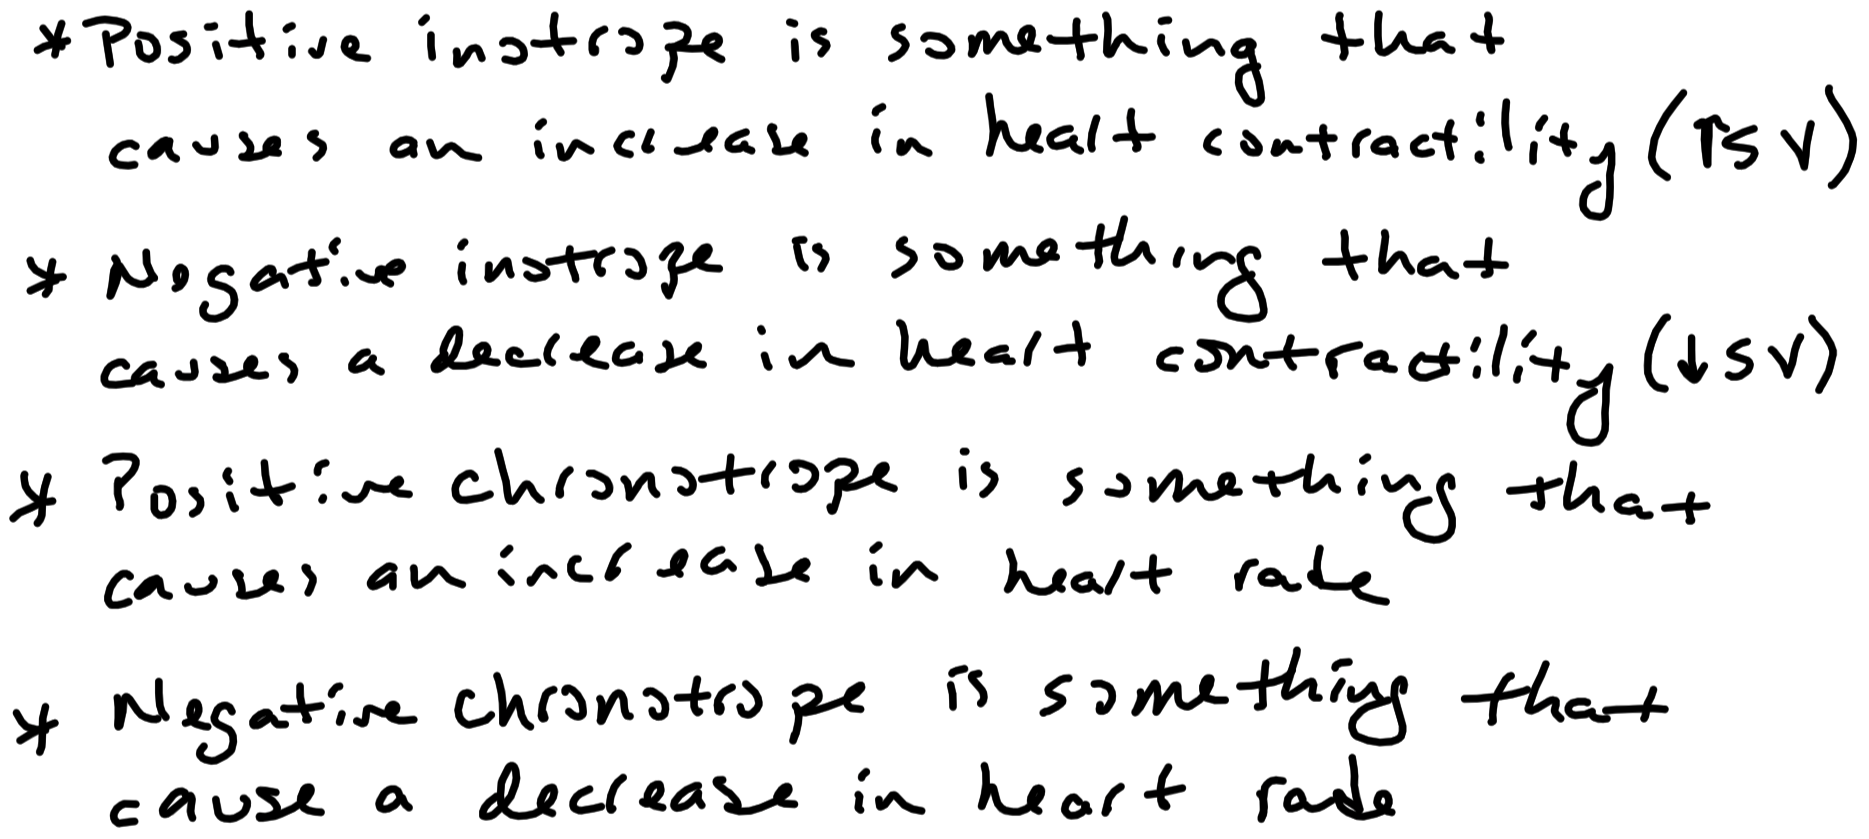 * Positive inotrope is something that
causes an increase in heart contractility (↑SV)
* Negative inotrope is something that
causes a decrease in heart contractility (↓SV)
* Positive chronotrope is something that
causes an increase in heart rate
* Negative chronotrope is something that
cause a decrease in heart rate